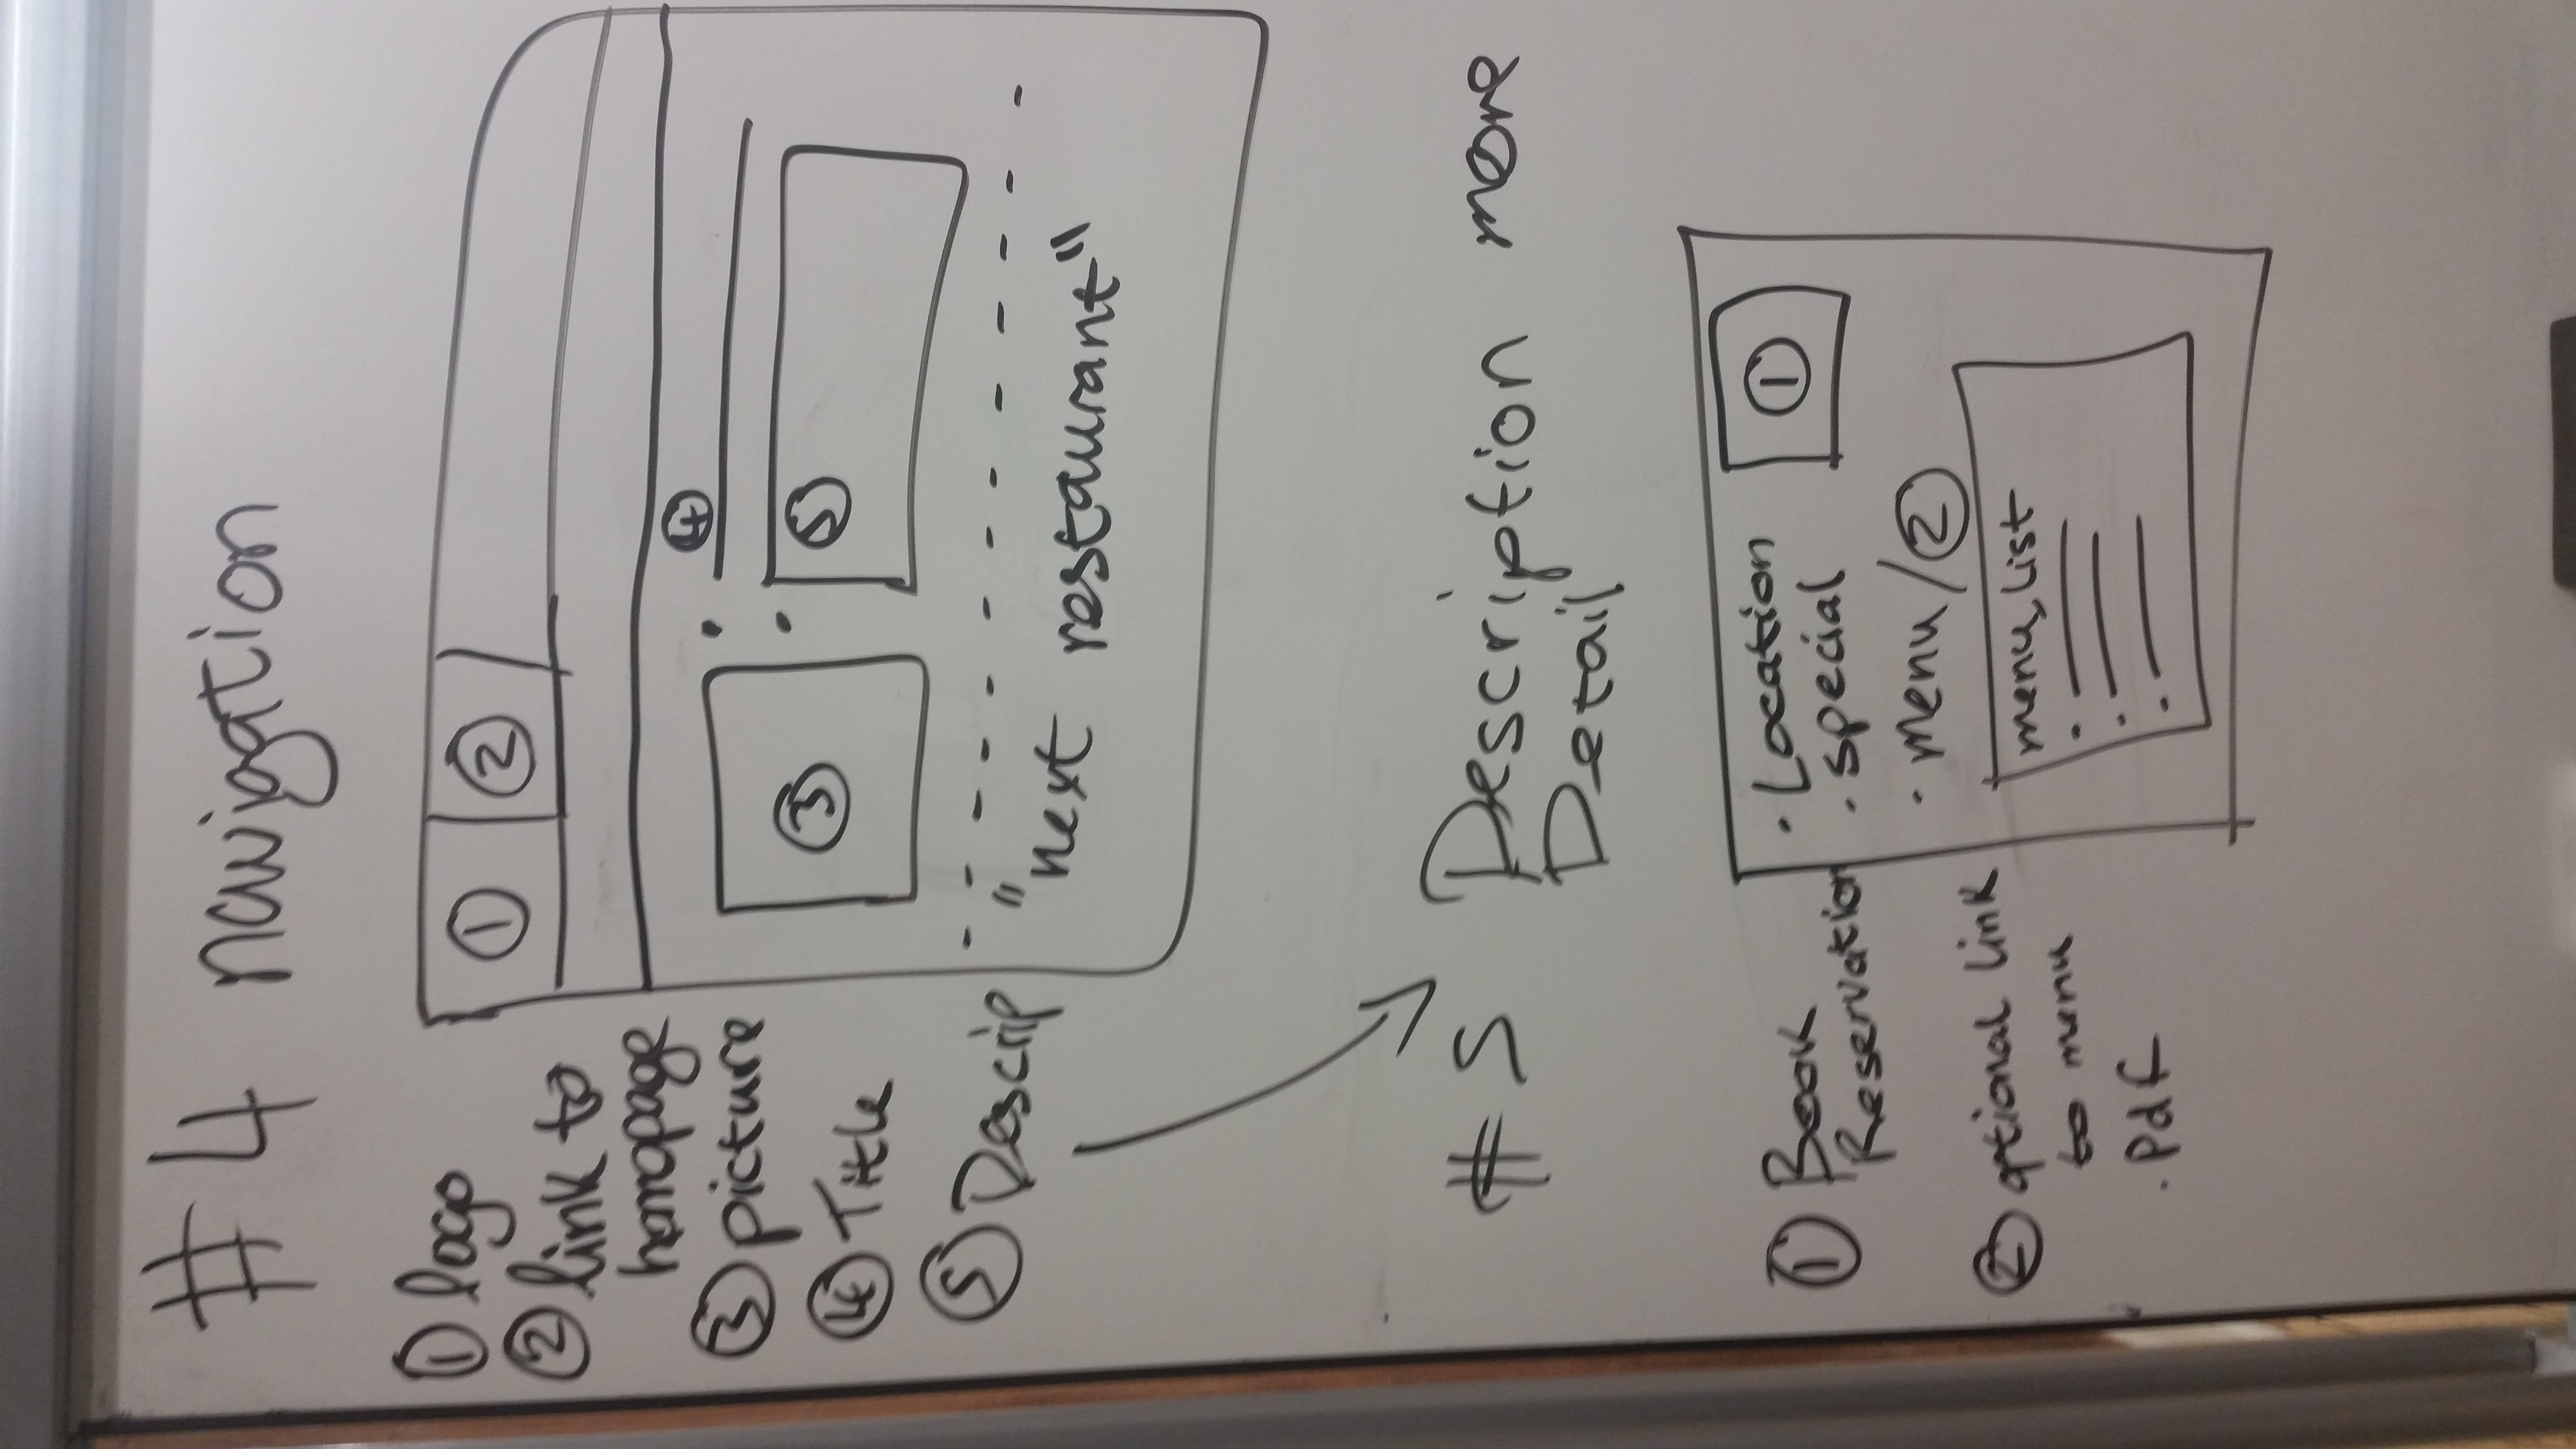 #4 navigation
① logo
② link to
homopage
③ picture
④ Title
⑤ Descrip
① ②
④
③ ⑤
"next restaurant"
#5 Description more
Detail
① Book
Reservation
② optional link
to menu
.Pdf
· Location ①
· special
· menu/②
menu list